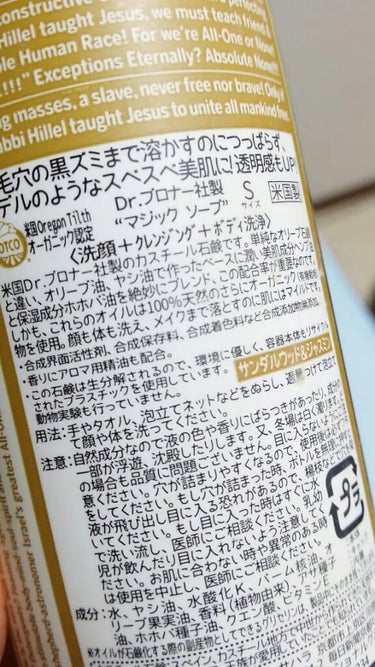 constructive
Hillel taught Jesus, we must teach friend
ble Human Race! For we're All-One or None!
!!!!" Exceptions Eternally? Absolute None!!!
masses, a slave, never free nor brave! Only
abbi Hillel taught Jesus to unite all mankind free
毛穴の黒ズミまで溶かすのにつっぱらず、
デルのようなスベスベ美肌に!透明感もUP
米国Oregon Tilth
オーガニック認定
Dr.ブロナー社製
"マジック ソープ"
S
サイズ
米国製
〈洗顔+クレンジング+ボディ洗浄〉
米国Dr.ブロナー社製のカスチール石鹸です。単純なオリーブ石鹸
と違い、オリーブ油、ヤシ油で作ったベースに潤い美肌成分ヘンプ油
と保湿成分ホホバ油を絶妙にブレンド、この配合率が重要なのです。
しかも、これらのオイルは100%天然のさらにオーガニック(有機認定)
物を使用。顔も体も洗え、メイクまで落とすのに肌にはマイルドです。
・合成界面活性剤、合成保存料、合成着色料など合成添加物無添加。
・香りにアロマ用精油も配合。
・この石鹸は生分解されるので、環境に優しく、容器本体もリサイクル
されたプラスチックを使用しています。
動物実験も行っていません。
サンダルウッド&ジャスミン
用法:手やタオル、泡立てネットなどをぬらし、適量つけて泡立
て顔や体を洗ってください。
注意:自然成分なので液の色や香りにばらつきがあったり、成分の
一部が浮遊、沈殿したりします。又、冬場は白く濁ります
の場合も品質に問題ございません。目に入らないようご注
意ください。穴が詰まりやすくなるので、使用後は
をしてください。もし穴が詰まった時、ボトルを無理に押
液が飛び出し目に入る恐れがあるので
ください。もし目に入った時はすぐに水
で洗い流し、医師にご相談ください。乳幼
児が飲んだり目に入れないよう注意して
さい。お肌に合わない時や異常のある時
は使用を中止し、医師にご相談ください。
成分:水、ヤシ油、水酸化K、パーム核油、オ
リーブ果実油、香料(植物由来)、アサ種子
油、ホホバ種子油、クエン酸、ビタミンE
プラ